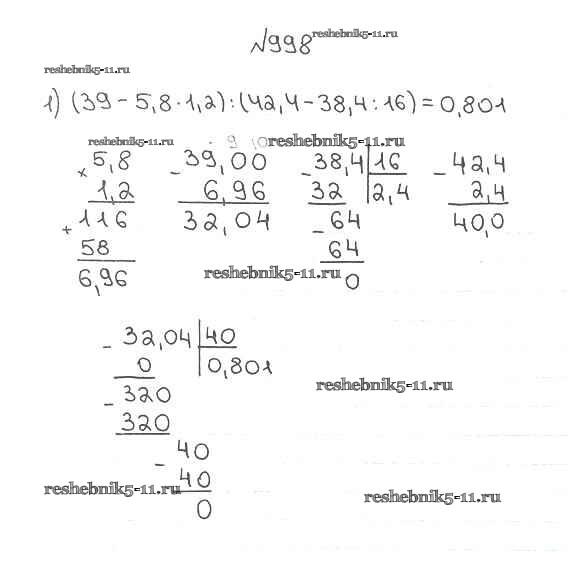 №998 reshebnik5-11.ru
reshebnik5-11.ru
1) (39 - 5,8 · 1,2) : (42,4 - 38,4 : 16) = 0,801
reshebnik5-11.ru 9 10 reshebnik5-11.ru
× 5,8 - 39,00 - 38,4 | 16 - 42,4
1,2 6,96 32 2,4 2,4
+ 116 32,04 - 64 40,0
58 64
6,96 reshebnik5-11.ru 0
- 32,04 | 40
0 0,801
- 320 reshebnik5-11.ru
320
- 40
reshebnik5-11.ru 40 reshebnik5-11.ru
0